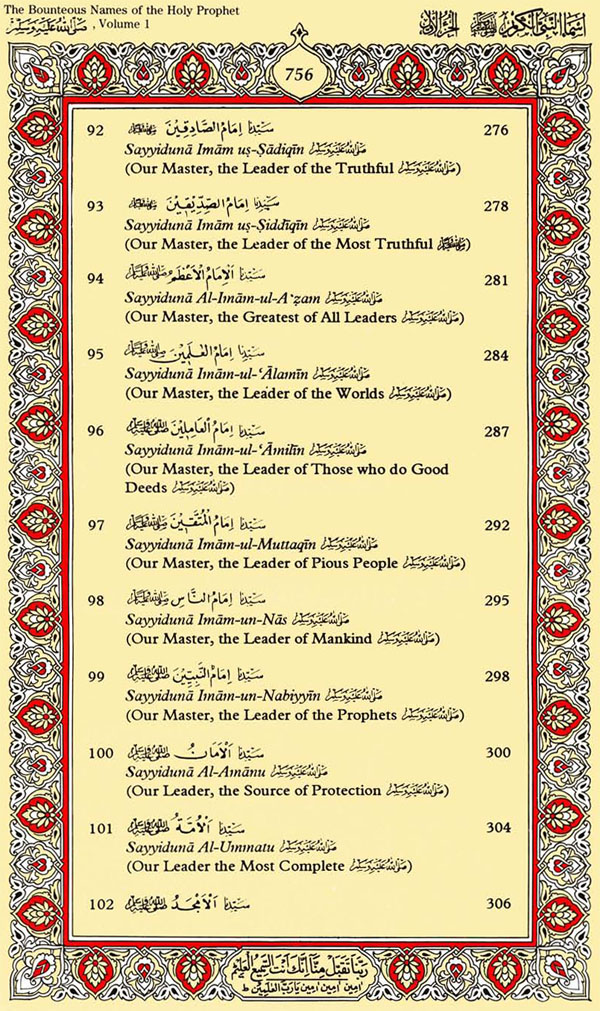 The Bounteous Names of the Holy Prophet
ﷺ , Volume 1
اسماء النبی الکریم ﷺ الجزء الاول
756
92 سَيِّدُنَا اِمَامُ الصَّادِقِيْنَ ﷺ 276
Sayyidunā Imām uṣ-Ṣādiqīn ﷺ
(Our Master, the Leader of the Truthful ﷺ)
93 سَيِّدُنَا اِمَامُ الصِّدِّيْقِيْنَ ﷺ 278
Sayyidunā Imām uṣ-Ṣiddīqīn ﷺ
(Our Master, the Leader of the Most Truthful ﷺ)
94 سَيِّدُنَا اَلْاِمَامُ الْاَعْظَمُ ﷺ 281
Sayyidunā Al-Imām-ul-A‘ẓam ﷺ
(Our Master, the Greatest of All Leaders ﷺ)
95 سَيِّدُنَا اِمَامُ الْعٰلَمِيْنَ ﷺ 284
Sayyidunā Imām-ul-‘Ālamīn ﷺ
(Our Master, the Leader of the Worlds ﷺ)
96 سَيِّدُنَا اِمَامُ الْعَامِلِيْنَ ﷺ 287
Sayyidunā Imām-ul-‘Āmilīn ﷺ
(Our Master, the Leader of Those who do Good
Deeds ﷺ)
97 سَيِّدُنَا اِمَامُ الْمُتَّقِيْنَ ﷺ 292
Sayyidunā Imām-ul-Muttaqīn ﷺ
(Our Master, the Leader of Pious People ﷺ)
98 سَيِّدُنَا اِمَامُ النَّاسِ ﷺ 295
Sayyidunā Imām-un-Nās ﷺ
(Our Master, the Leader of Mankind ﷺ)
99 سَيِّدُنَا اِمَامُ النَّبِيِّيْنَ ﷺ 298
Sayyidunā Imām-un-Nabiyyīn ﷺ
(Our Master, the Leader of the Prophets ﷺ)
100 سَيِّدُنَا اَلْاَمَانُ ﷺ 300
Sayyidunā Al-Amānu ﷺ
(Our Leader, the Source of Protection ﷺ)
101 سَيِّدُنَا اَلْاُمَّةُ ﷺ 304
Sayyidunā Al-Ummatu ﷺ
(Our Leader the Most Complete ﷺ)
102 سَيِّدُنَا اَلْاَمْجَدُ ﷺ 306
رَبَّنَا تَقَبَّلْ مِنَّا اِنَّكَ اَنْتَ السَّمِيْعُ الْعَلِيْمُ
اٰمِيْن اٰمِيْن اٰمِيْن يَا رَبَّ الْعٰلَمِيْنَ ط